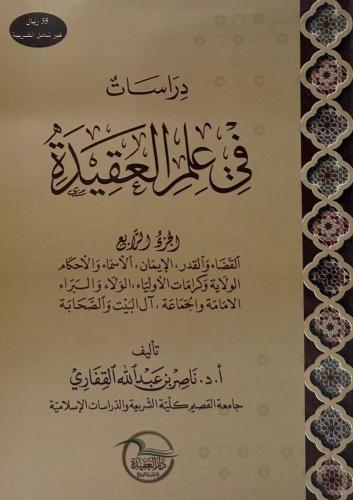 35 ريال
غير شامل الضريبة
دِرَاسَاتٌ
فِي عِلمِ العَقِيدَةِ
الجزءُ الرَّابِع
القَضَاء وَالقَدر، الإيمَان، الأسمَاء وَالأحكَام
الولاية وَكرامَات الأوليَاء، الوَلاء وَالبَراء
الإمَامَة وَالجمَاعَة، آل البَيْت وَالصَّحَابَة
تأليف
أ.د. نَاصِر بن عَبدالله القِفَاري
جامعة القصيم كليّة الشريعة والدّراسات الإسلاميّة
دار العقيدة